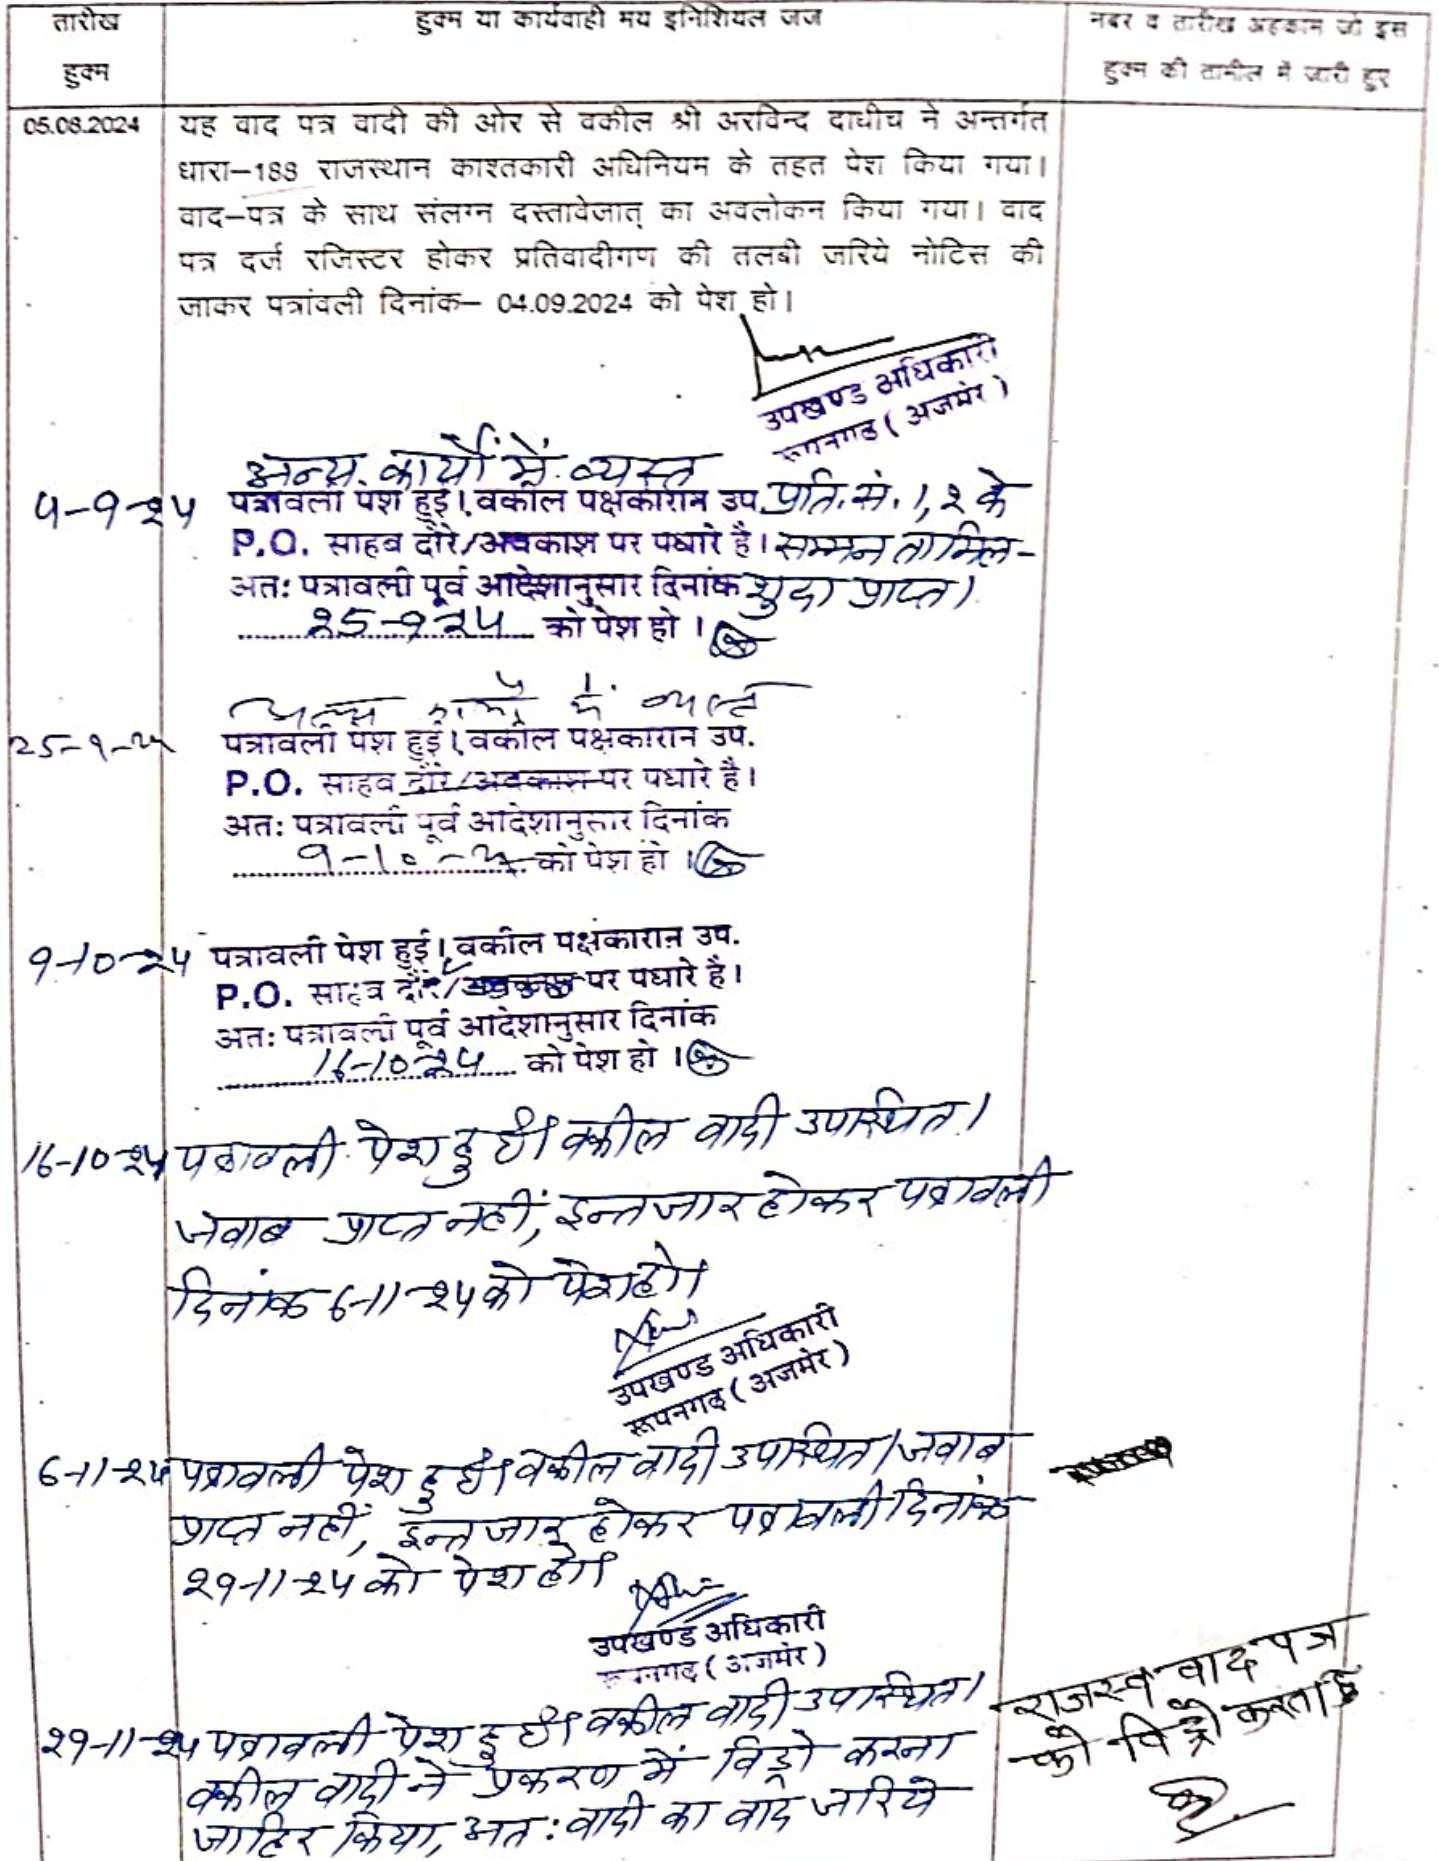 तारीख
हुक्म
हुक्म या कार्यवाही मय इनिशियल जज
नम्बर व तारीख अहकाम जो इस
हुक्म की तामील में जारी हुए
05.08.2024
यह वाद पत्र वादी की ओर से वकील श्री अरविन्द दाधीच ने अन्तर्गत
धारा–188 राजस्थान काश्तकारी अधिनियम के तहत पेश किया गया।
वाद–पत्र के साथ संलग्न दस्तावेजात् का अवलोकन किया गया। वाद
पत्र दर्ज रजिस्टर होकर प्रतिवादीगण की तलबी जरिये नोटिस की
जाकर पत्रांवली दिनांक– 04.09.2024 को पेश हो।
उपखण्ड अधिकारी
रूपनगढ ( अजमेर )
अन्य कार्यों में व्यस्त
4-9-24 पत्रावली पेश हुई। वकील पक्षकारान उप. प्रति. सं. 1, 2 के
P.O. साहब दौरे/अवकाश पर पधारे है। सम्मन तामिल-
अत: पत्रावली पूर्व आदेशानुसार दिनांक शुदा प्राप्त।
25-9-24 को पेश हो ।
अन्य कार्यों में व्यस्त
25-9-24 पत्रावली पेश हुई। वकील पक्षकारान उप.
P.O. साहब दौरे/अवकाश पर पधारे है।
अत: पत्रावली पूर्व आदेशानुसार दिनांक
9-10-24 को पेश हो ।
9-10-24 पत्रावली पेश हुई। वकील पक्षकारान उप.
P.O. साहब दौरे/अवकाश पर पधारे है।
अत: पत्रावली पूर्व आदेशानुसार दिनांक
16-10-24 को पेश हो ।
16-10-24 पत्रावली पेश हुई। वकील वादी उपस्थित।
जवाब प्राप्त नहीं, इन्तजार होकर पत्रावली
दिनांक 6-11-24 को पेश हो।
उपखण्ड अधिकारी
रूपनगढ ( अजमेर )
6-11-24 पत्रावली पेश हुई। वकील वादी उपस्थित। जवाब
प्राप्त नहीं, इन्तजार होकर पत्रावली दिनांक
29-11-24 को पेश हो।
उपखण्ड अधिकारी
रूपनगढ ( अजमेर )
29-11-24 पत्रावली पेश हुई। वकील वादी उपस्थित।
वकील वादी ने प्रकरण में विड्रो करना
जाहिर किया, अत: वादी का वाद जरिये
राजस्व वाद पत्र
को विड्रो करता हूँ